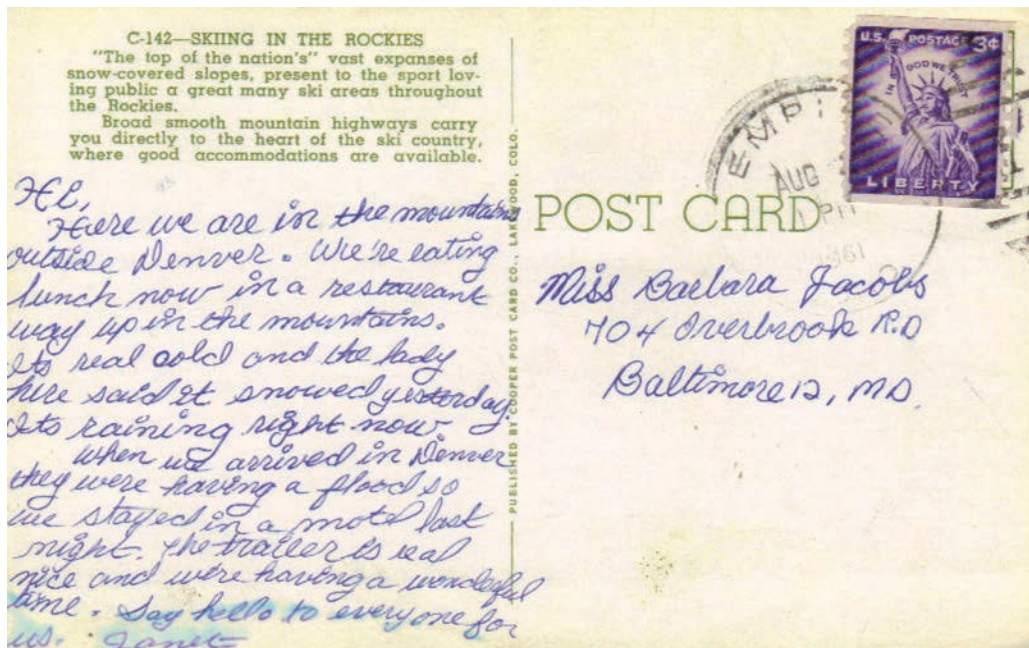 C-142—SKIING IN THE ROCKIES
"The top of the nation's" vast expanses of
snow-covered slopes, present to the sport lov-
ing public a great many ski areas throughout
the Rockies.
Broad smooth mountain highways carry
you directly to the heart of the ski country,
where good accommodations are available.
Hi,
Here we are in the mountains
outside Denver. We're eating
lunch now in a restaurant
way up in the mountains.
Its real cold and the lady
here said it snowed yesterday.
Its raining right now
When we arrived in Denver
they were having a flood so
we stayed in a motel last
night. The trailer is real
nice and we're having a wonderful
time. Say hello to everyone for
us. Janet
PUBLISHED BY COOPER POST CARD CO., LAKEWOOD, COLO.
U.S. POSTAGE 3¢
IN GOD WE TRUST
LIBERTY
AUG
PM
1961
POST CARD
Miss Barbara Jacobs
704 Overbrook R.D
Baltimore 12, MD.